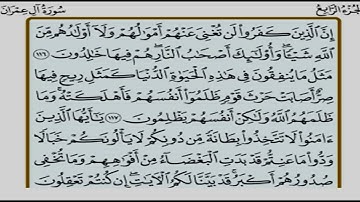 الجزء الرابع
سورة آل عمران
إِنَّ الَّذِينَ كَفَرُوا لَن تُغْنِيَ عَنْهُمْ أَمْوَالُهُمْ وَلَا أَوْلَادُهُم مِّنَ
اللَّهِ شَيْئًا وَأُولَٰئِكَ أَصْحَابُ النَّارِ هُمْ فِيهَا خَالِدُونَ ١١٦
مَثَلُ مَا يُنفِقُونَ فِي هَٰذِهِ الْحَيَاةِ الدُّنْيَا كَمَثَلِ رِيحٍ فِيهَا
صِرٌّ أَصَابَتْ حَرْثَ قَوْمٍ ظَلَمُوا أَنفُسَهُمْ فَأَهْلَكَتْهُ وَمَا
ظَلَمَهُمُ اللَّهُ وَلَٰكِنْ أَنفُسَهُمْ يَظْلِمُونَ ١١٧ يَا أَيُّهَا الَّذِينَ
ءَامَنُوا لَا تَتَّخِذُوا بِطَانَةً مِّن دُونِكُمْ لَا يَأْلُونَكُمْ خَبَالًا
وَدُّوا مَا عَنِتُّمْ قَدْ بَدَتِ الْبَغْضَاءُ مِنْ أَفْوَاهِهِمْ وَمَا تُخْفِي
صُدُورُهُمْ أَكْبَرُ قَدْ بَيَّنَّا لَكُمُ الْآيَاتِ إِن كُنتُمْ تَعْقِلُونَ